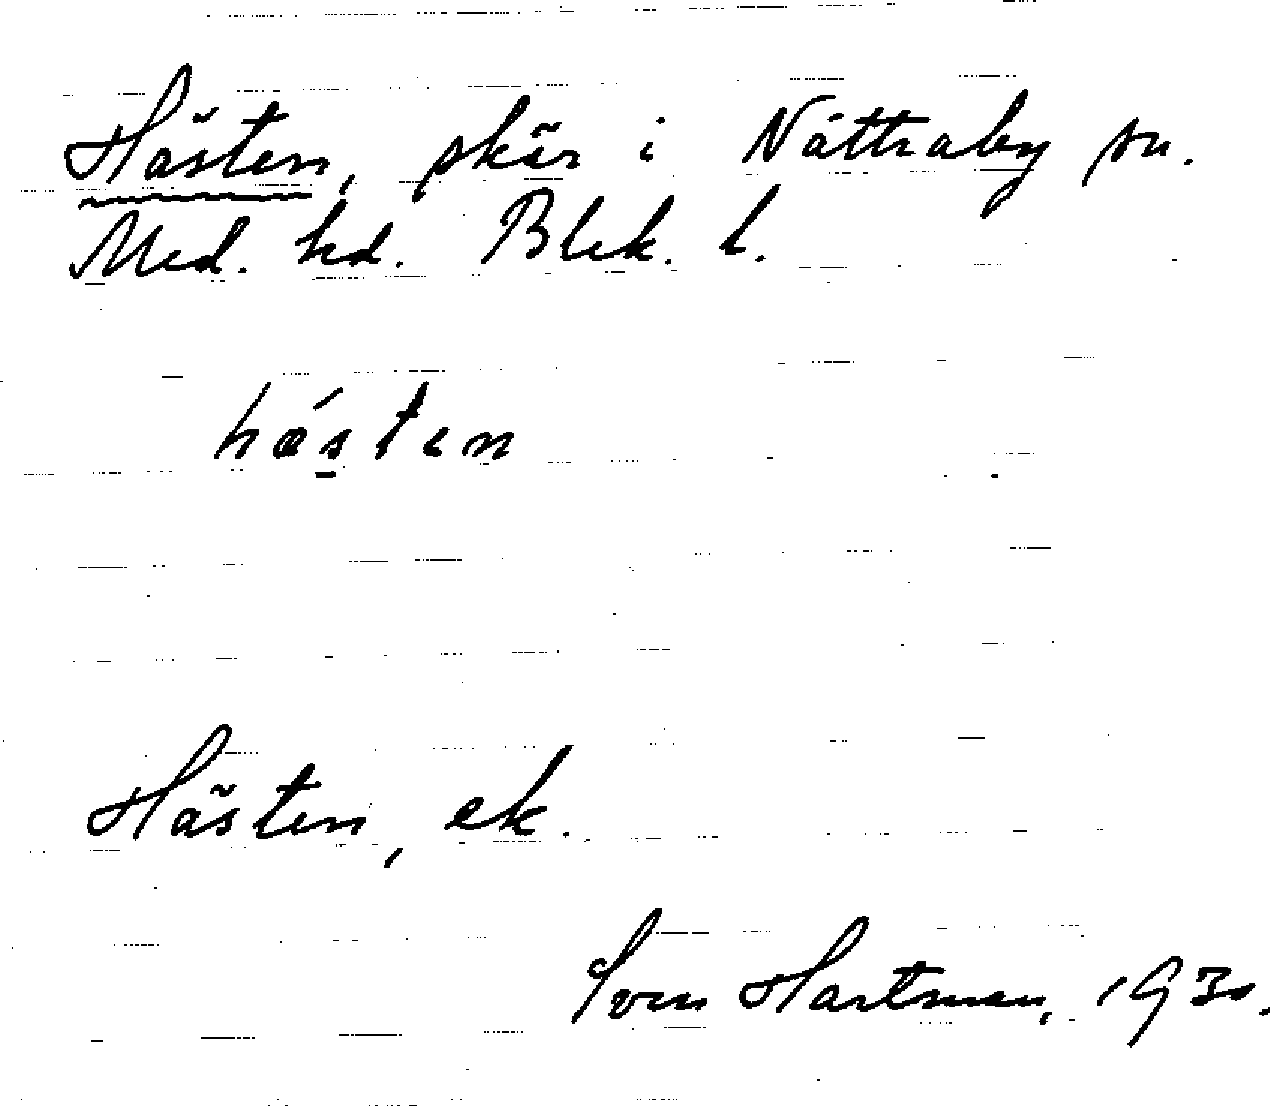 Hästen, skär i Nättraby sn.
Med. hd. Blek. l.
hǽsten
Hästen, ek.
Sven Hartman, 1930.